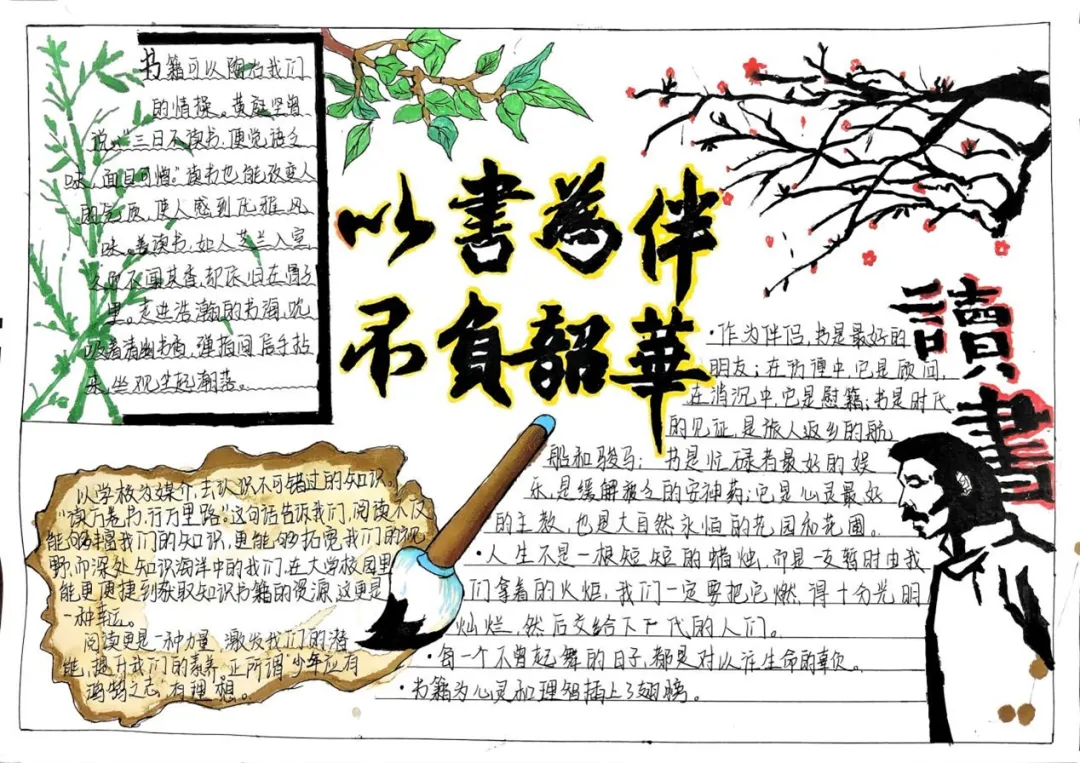 以書為伴
不負韶華
讀書
书籍可以陶冶我们
的情操。黄庭坚曾
说:"三日不读书,便觉语乏
味,面目可憎。"读书也能改变人
的气质,使人感到优雅风
味。善读书,如入芝兰入室
久而不闻其香,却依旧在骨子
里。走进浩瀚的书海,吮
吸着清幽书香,弹指间信手拈
来,坐观云起潮落。
以学校为媒介,去认识不可错过的知识。
"读万卷书,行万里路。"这句话告诉我们,阅读不仅
能够丰富我们的知识,更能够拓宽我们的视
野,而深处知识海洋中的我们,在大学校园里
能更便捷到获取知识书籍的资源,这更是
一种幸运。
阅读更是一种力量,激发我们的潜
能,提升我们的素养。正所谓"少年应有
鸿鹄之志,有理想。
·作为伴侣,书是最好的
朋友;在彷徨中,它是顾问,
在消沉中,它是慰籍;书是时代
的见证,是旅人返乡的航
船和骏马;书是忙碌者最好的娱
乐,是缓解疲乏的安神药;它是心灵最好
的主教,也是大自然永恒的花园和花圃。
·人生不是一根短短的蜡烛,而是一支暂时由我
们拿着的火炬,我们一定要把它燃,得十分光明
灿烂,然后交给下一代的人们。
·每一个不曾起舞的日子,都是对以往生命的辜负。
·书籍为心灵和理智插上了翅膀。